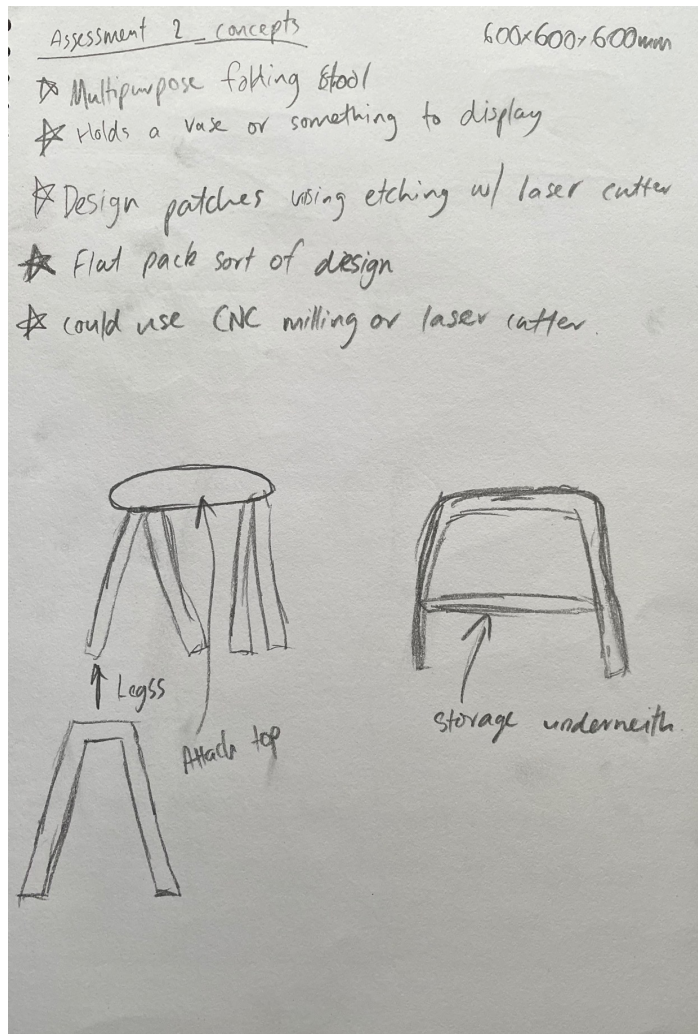 Assessment 2 concepts
600x600x600mm
Multipurpose folding stool
Holds a vase or something to display
Design patches using etching w/ laser cutter
Flat pack sort of design
could use CNC milling or laser cutter.
Legss
Attach top
Storage underneith